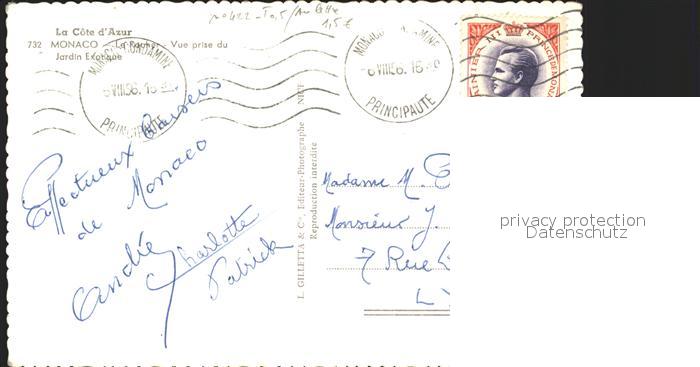 La Côte d'Azur
732 MONACO - La Rade - Vue prise du
Jardin Exotique
MONACO-CONDAMINE
6 VIII 56. 16
PRINCIPAUTE
MONACO-CONDAMINE
6 VIII 56. 16
PRINCIPAUTE
RAINIER III PRINCE DE MONA
Affectueux Baisers
de Monaco
Andrée
Charlotte
Patrick
L. GILLETTA & Cie, Editeur-Photographe NICE
Reproduction interdite
Madame M.
Monsieur J.
7 Rue
L
privacy protection
Datenschutz